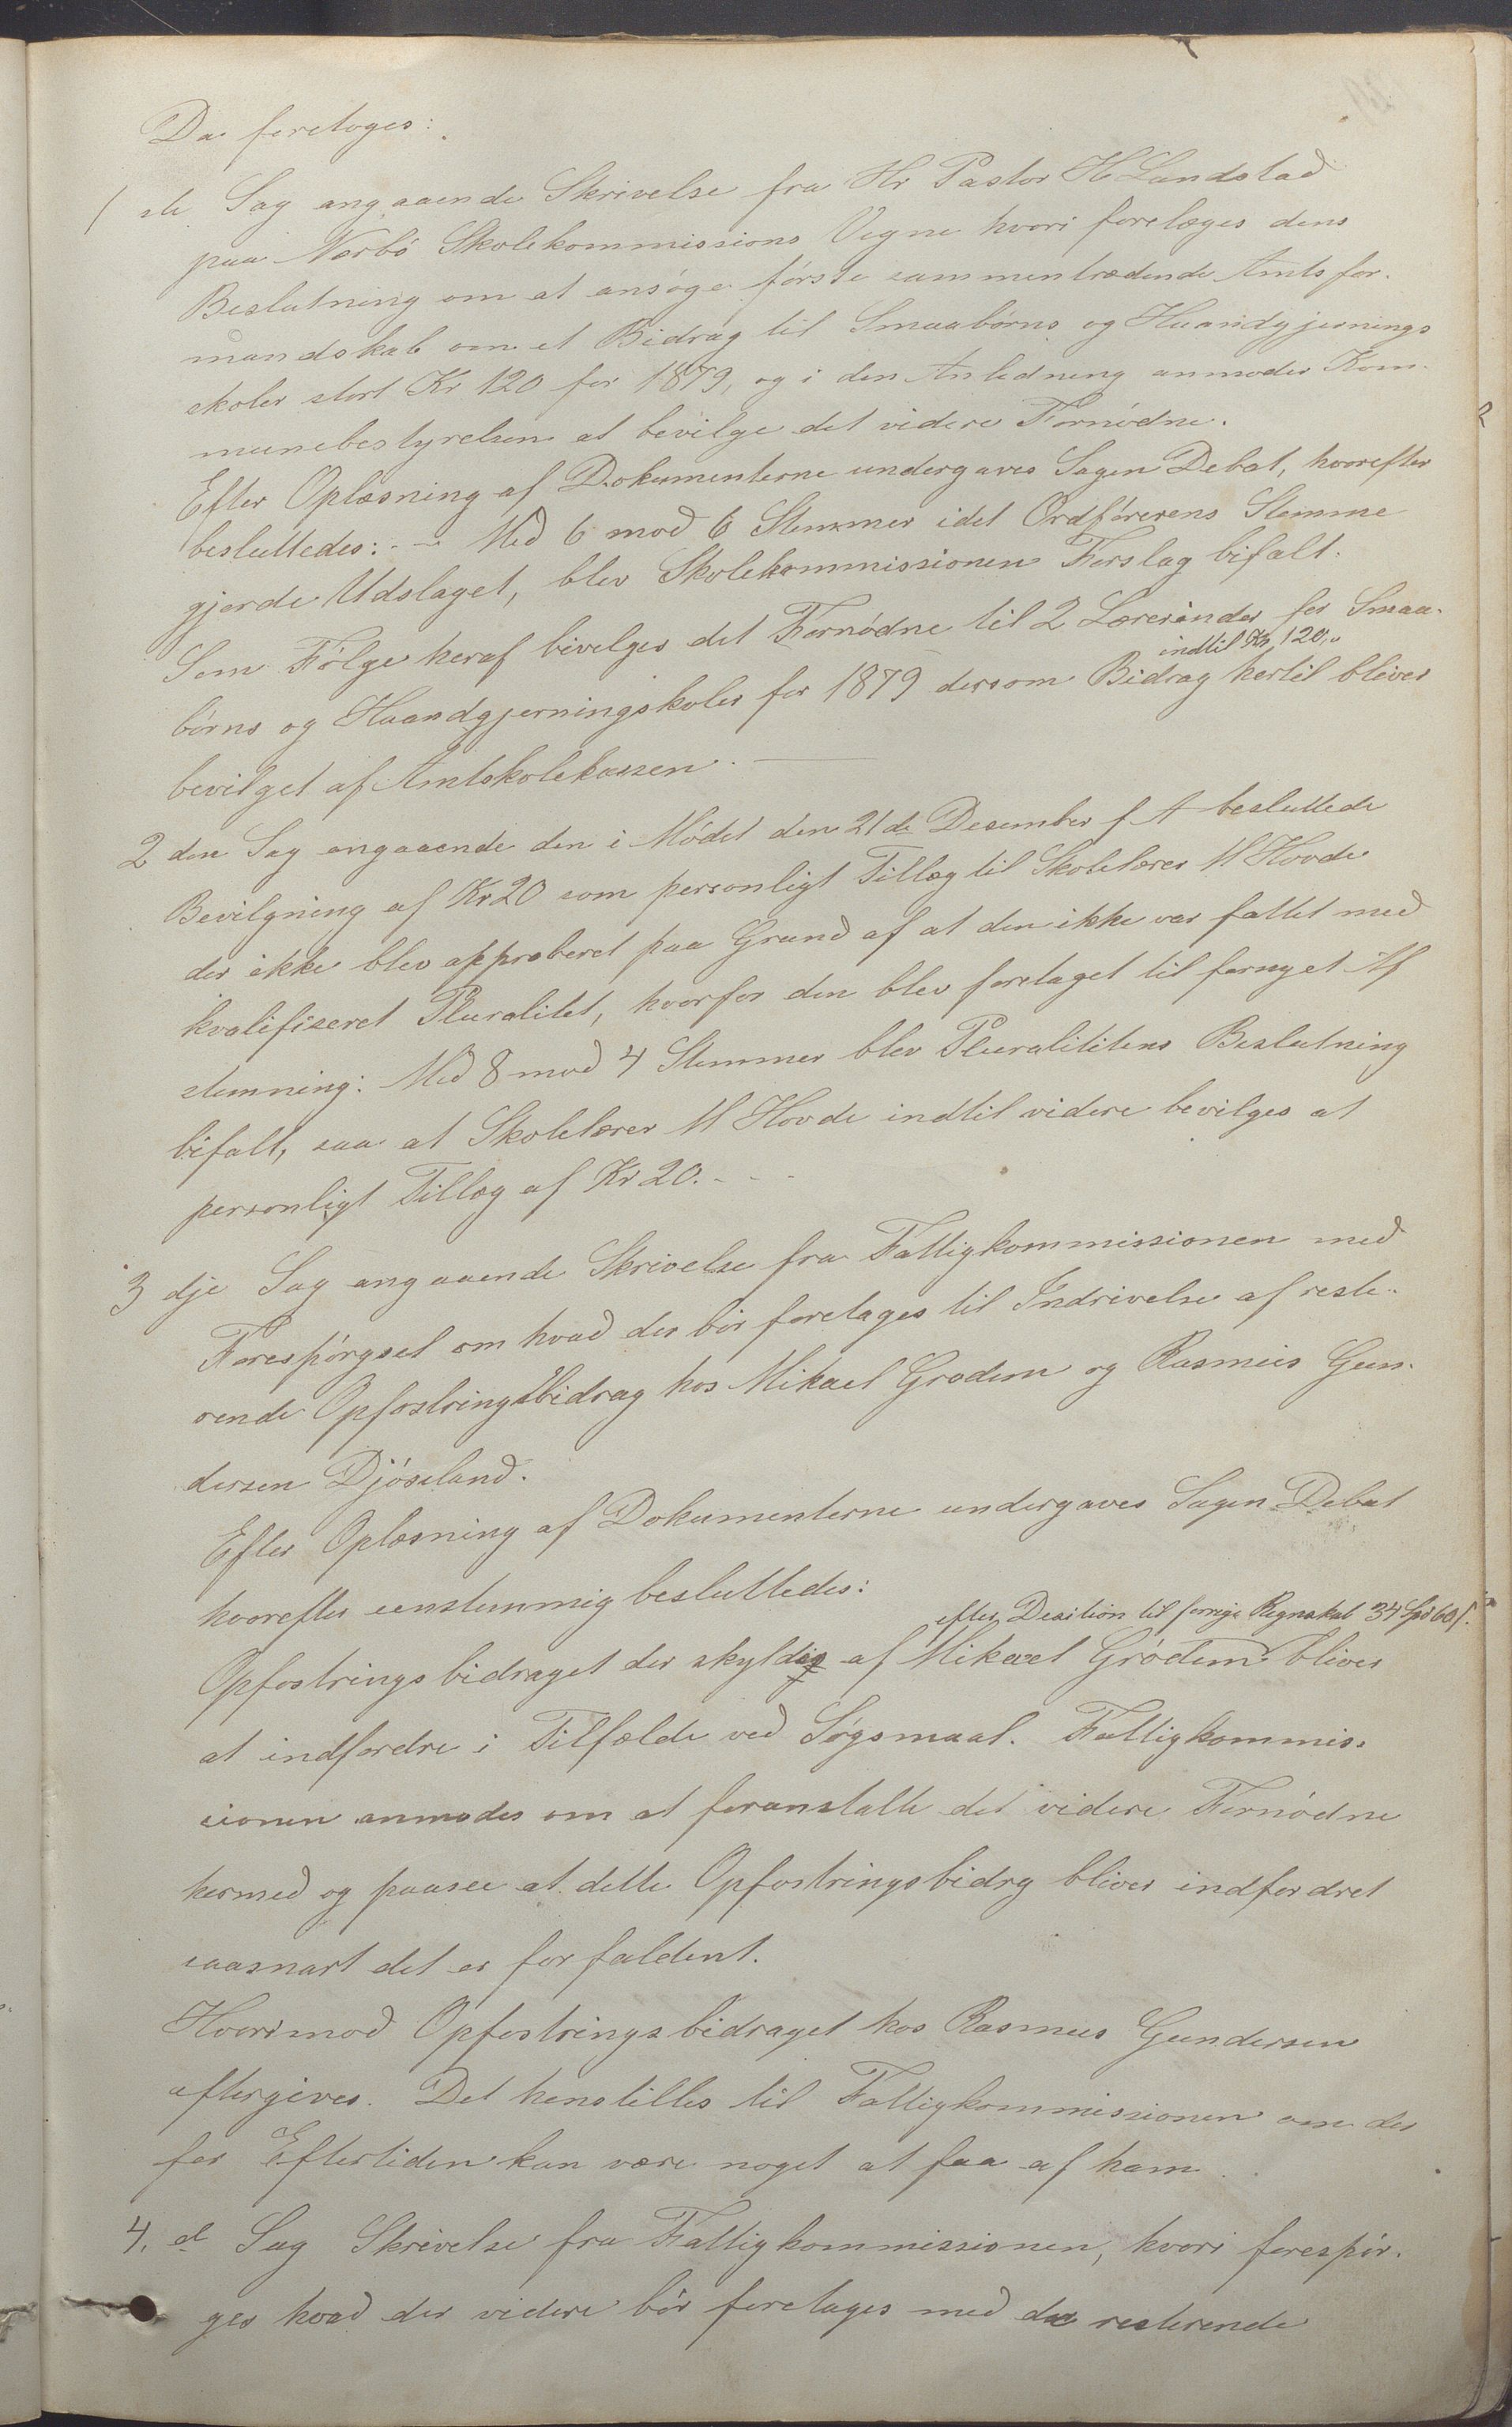 Da foretoges:
1 ste Sag angaaende Skrivelse fra Hr Pastor H Landstad
paa Nærbö Skolekommissions Vegne hvori forelæges dens
Beslutning om at ansöge förste sammentrædende Amtsfor-
mandskab om et Bidrag til Smaabörns og Haandgjernings
skoler stort Kr 120 for 1879, og i den Anledning anmodes Kom-
munebestyrelsen at bevilge det videre Fornödne.
Efter Oplæsning af Dokumenterne undergaves Sagen Debat, hvorefter
besluttedes: - - Med 6 mod 6 Stemmer idet Ordförerens Stemme
gjorde Udslaget, blev Skolekommissionen Forslag bifalt.
Som Fölge heraf bivelges det Fornödne til 2 Lærerinder for Smaa-
indtil Kr 120,,
börns og Haandgjerningskoler for 1879 dersom Bidrag hertil bliver
bevilget af Amtskolekassen. —
2 den Sag angaaende den i Mödet den 21de Desember f A besluttede
Bevilgning af Kr 20 som personligt Tillæg til Skolelærer M Hovde
der ikke blev approberet paa Grund af at den ikke var fattet med
kvalifiseret Pluralitet, hvorfor den blev foretaget til fornyet Af
stemning: Med 8 mod 4 Stemmer blev Pluralititens Beslutning
bifalt, saa at Skolelærer M Hovde indtil videre bevilges at
personligt Tillæg af Kr 20. - - -
3 dje Sag angaaende Skrivelse fra Fattigkommissionen med
Forespörgsel om hvad der bör foretages til Indrivelse af reste-
rende Opfostringsbidrag hos Mikael Grodem og Rasmus Gun-
dersen Djösland.
Efter Oplæsning af Dokumenterne undergaves Sagen Debat
hvorefter eenstemmig besluttedes:
efter Desition til forrige Regnskab 34 Spd 60 s.
Opfostringsbidraget der skyldes af Mikael Grödem bliver
at indfordre i Tilfælde ved Sögsmaal. Fattigkommis-
sionen anmodes om at foranstalte det videre Fornödne
hermed og paasee at dette Opfostringsbidrg bliver indfordret
saasnart det er forfaldent.
Hvorimod Opfostringsbidraget hos Rasmus Gundersen
eftergives. Det henstilles til Fattigkommissionen om der
for Eftertiden kan være noget at faa af ham.
4. d Sag Skrivelse fra Fattigkommissionen, hvori forespör-
ges hvad der videre bör foretages med de resterende